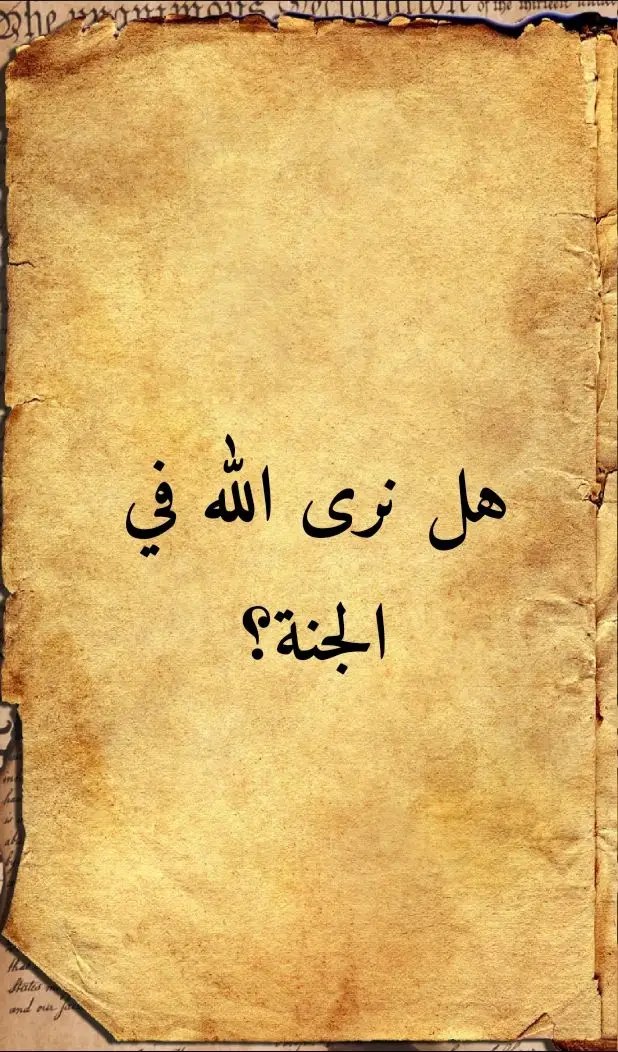 The unanimous Declaration of the thirteen united
هل نرى الله في
الجنة؟
States
and our